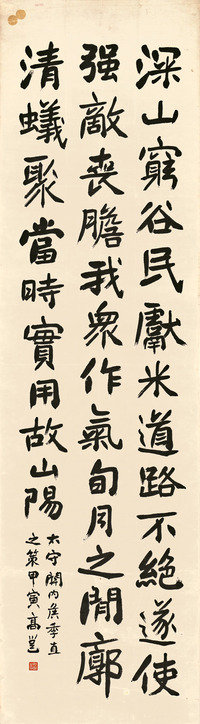 深山窮谷民獻米道路不絕遂使
强敵喪膽我衆作氣旬月之間廓
清蟻聚當時實用故山陽
太守關内侯季直
之策甲寅高邕